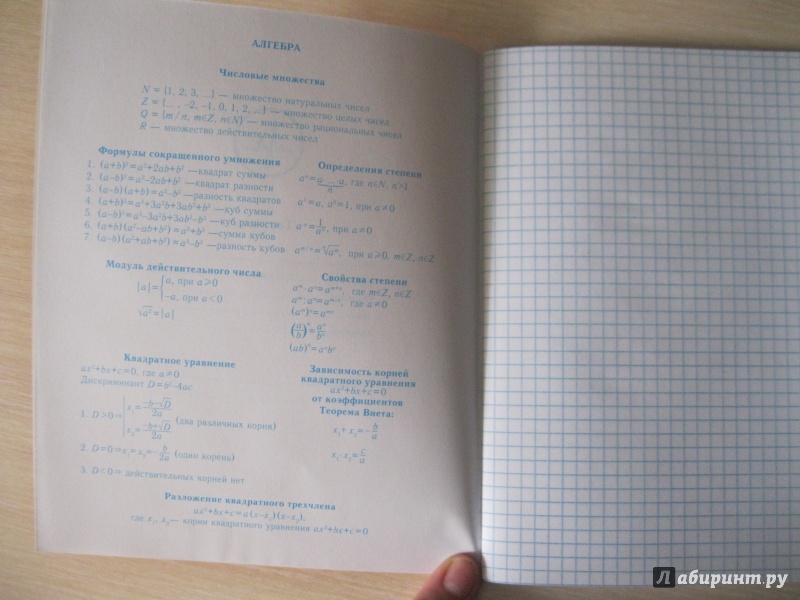 АЛГЕБРА
Числовые множества
N = {1, 2, 3, ...} — множество натуральных чисел
Z = {... , -2, -1, 0, 1, 2, ...} — множество целых чисел
Q = {m/n, m∈Z, n∈N} — множество рациональных чисел
R — множество действительных чисел
Формулы сокращенного умножения
1. (a+b)²=a²+2ab+b² —квадрат суммы
2. (a–b)²=a²–2ab+b² —квадрат разности
3. (a–b)(a+b)=a²–b² —разность квадратов
4. (a+b)³=a³+3a²b+3ab²+b³ —куб суммы
5. (a–b)³=a³–3a²b+3ab²–b³ —куб разности
6. (a+b)(a²–ab+b²)=a³+b³ —сумма кубов
7. (a–b)(a²+ab+b²)=a³–b³ —разность кубов
Определения степени
aⁿ=a ... a, где n∈N, n>1
n
a¹=a, a⁰=1, при a≠0
a⁻ⁿ=1/aⁿ, при a≠0
a^(m/n)=ⁿ√aᵐ, при a≥0, m∈Z, n∈Z
Модуль действительного числа
|a|={a, при a≥0
–a, при a<0
√a²=|a|
Свойства степени
aᵐ·aⁿ=aᵐ⁺ⁿ, где m∈Z, n∈Z
aᵐ:aⁿ=aᵐ⁻ⁿ, где a≠0
(aᵐ)ⁿ=aᵐⁿ
(a/b)ⁿ=aⁿ/bⁿ
(ab)ⁿ=aⁿbⁿ
Квадратное уравнение
ax²+bx+c=0, где a≠0
Дискриминант D=b²–4ac
1. D>0⇒ x₁=(–b–√D)/2a
x₂=(–b+√D)/2a (два различных корня)
2. D=0⇒x₁=x₂=–b/2a (один корень)
3. D<0⇒ действительных корней нет
Зависимость корней
квадратного уравнения
ax²+bx+c=0
от коэффициентов
Теорема Виета:
x₁+x₂=–b/a
x₁·x₂=c/a
Разложение квадратного трехчлена
ax²+bx+c=a(x–x₁)(x–x₂),
где x₁, x₂— корни квадратного уравнения ax²+bx+c=0
Лабиринт.ру